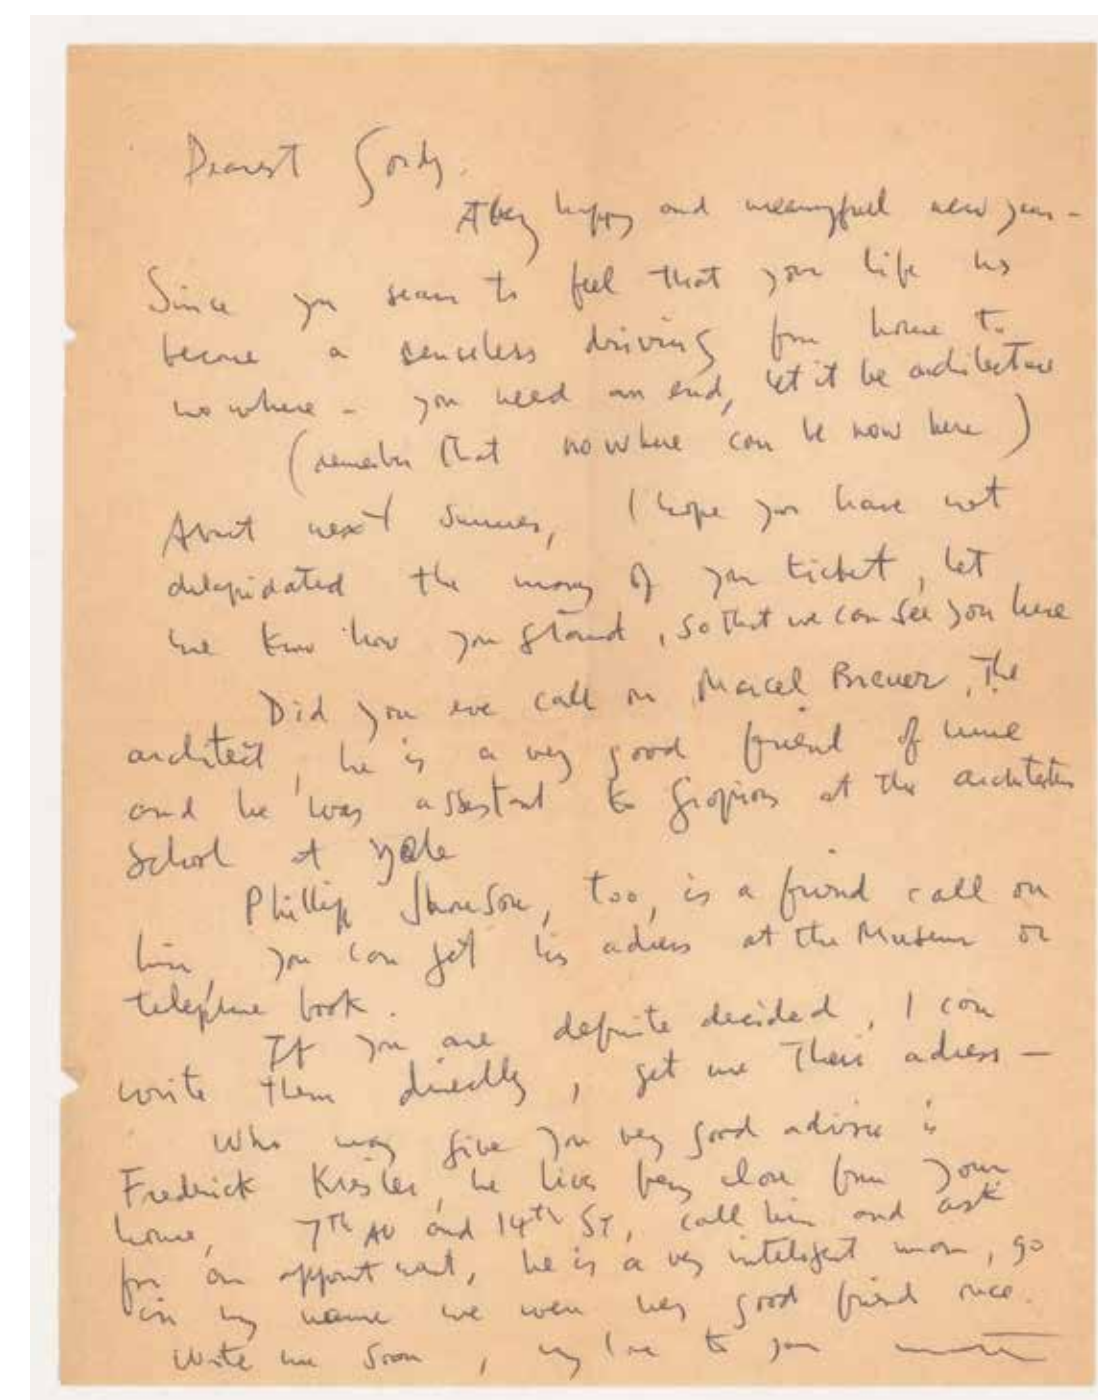 Dearest Gordy,
A very happy and meaningful new year -
Since you seem to feel that your life has
become a senseless driving from home to
no where - you need an end, let it be architecture
(remember that nowhere can be now here)
About next summer, I hope you have not
delapidated the money of your ticket, let
me know how you stand, so that we can see you here
Did you ever call on Marcel Breuer, the
architect, he is a very good friend of mine
and he was assistant to Gropious at the architecture
School at Yale
Phillip Jhonson, too, is a friend call on
him, you can get his adress at the Museum or
telephone book.
If you are definite decided, I can
write them directly, get me their adress -
Who may give you very good advise is
Frederick Kiesler, he lives very close from your
home, 7th AV and 14th ST, call him and ask
for an appointment, he is a very inteligent man, go
in my name we were very good friend once.
Write me soon, my love to you